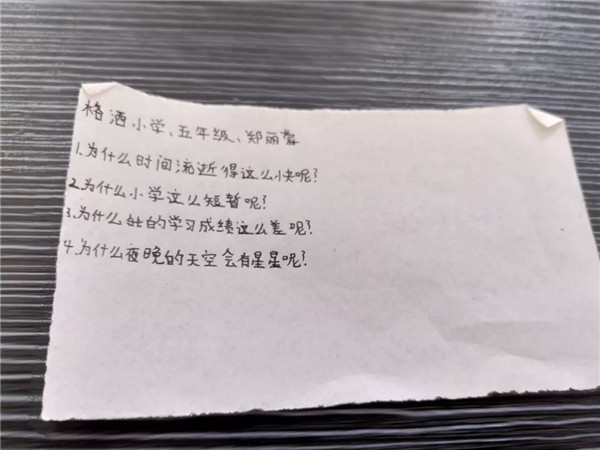 格洒小学、五年级、郑丽
1.为什么时间流逝得这么快呢?
2.为什么小学这么短暂呢?
3.为什么的学习成绩这么差呢?
4.为什么夜晚的天空会有星星呢?